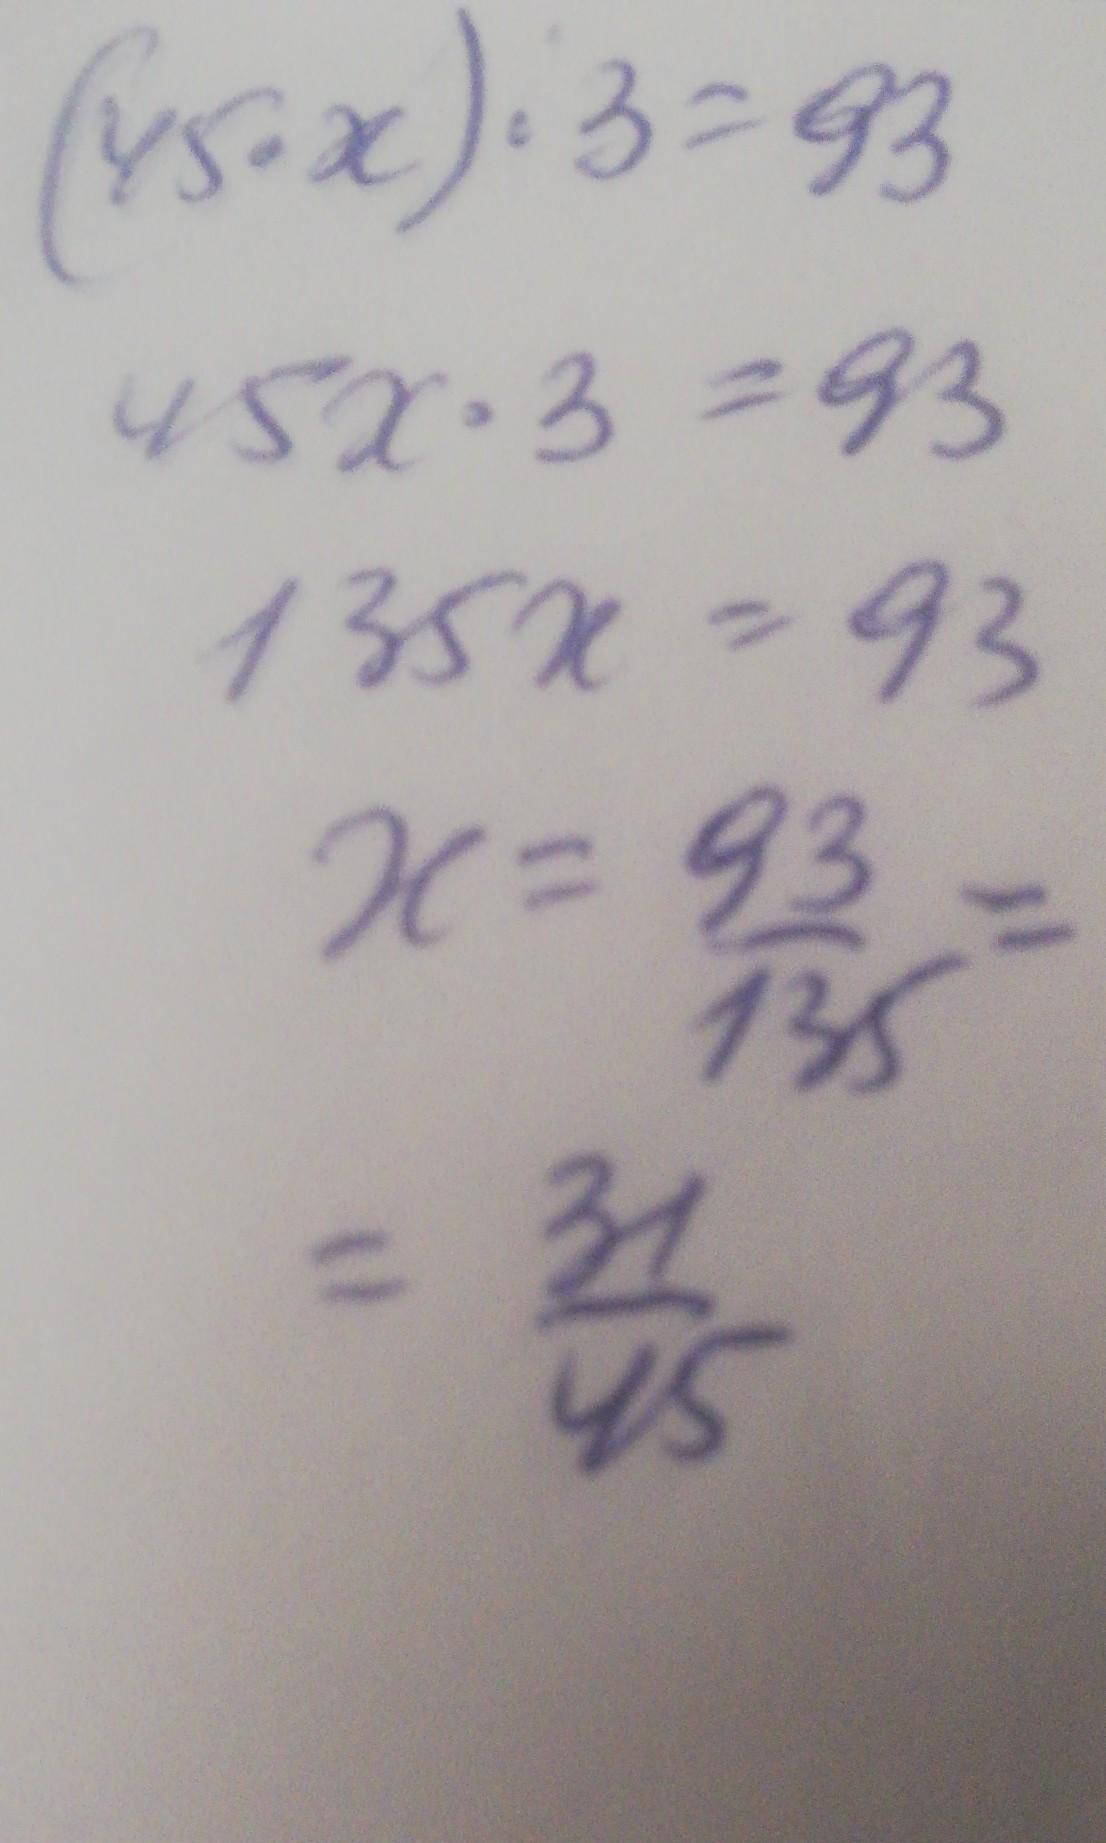 (45·x)·3=93
45x·3=93
135x=93
x=93/135=
=31/45